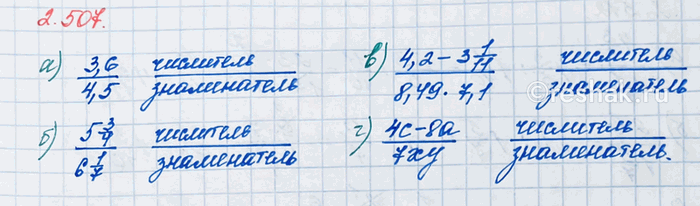 2.507.
а) 3,6/4,5 числитель/знаменатель
в) (4,2 - 3 1/11)/(8,49 · 7,1) числитель/знаменатель
б) (5 3/4)/(6 1/7) числитель/знаменатель
г) (4c - 8a)/(7xy) числитель/знаменатель.
reshak.ru